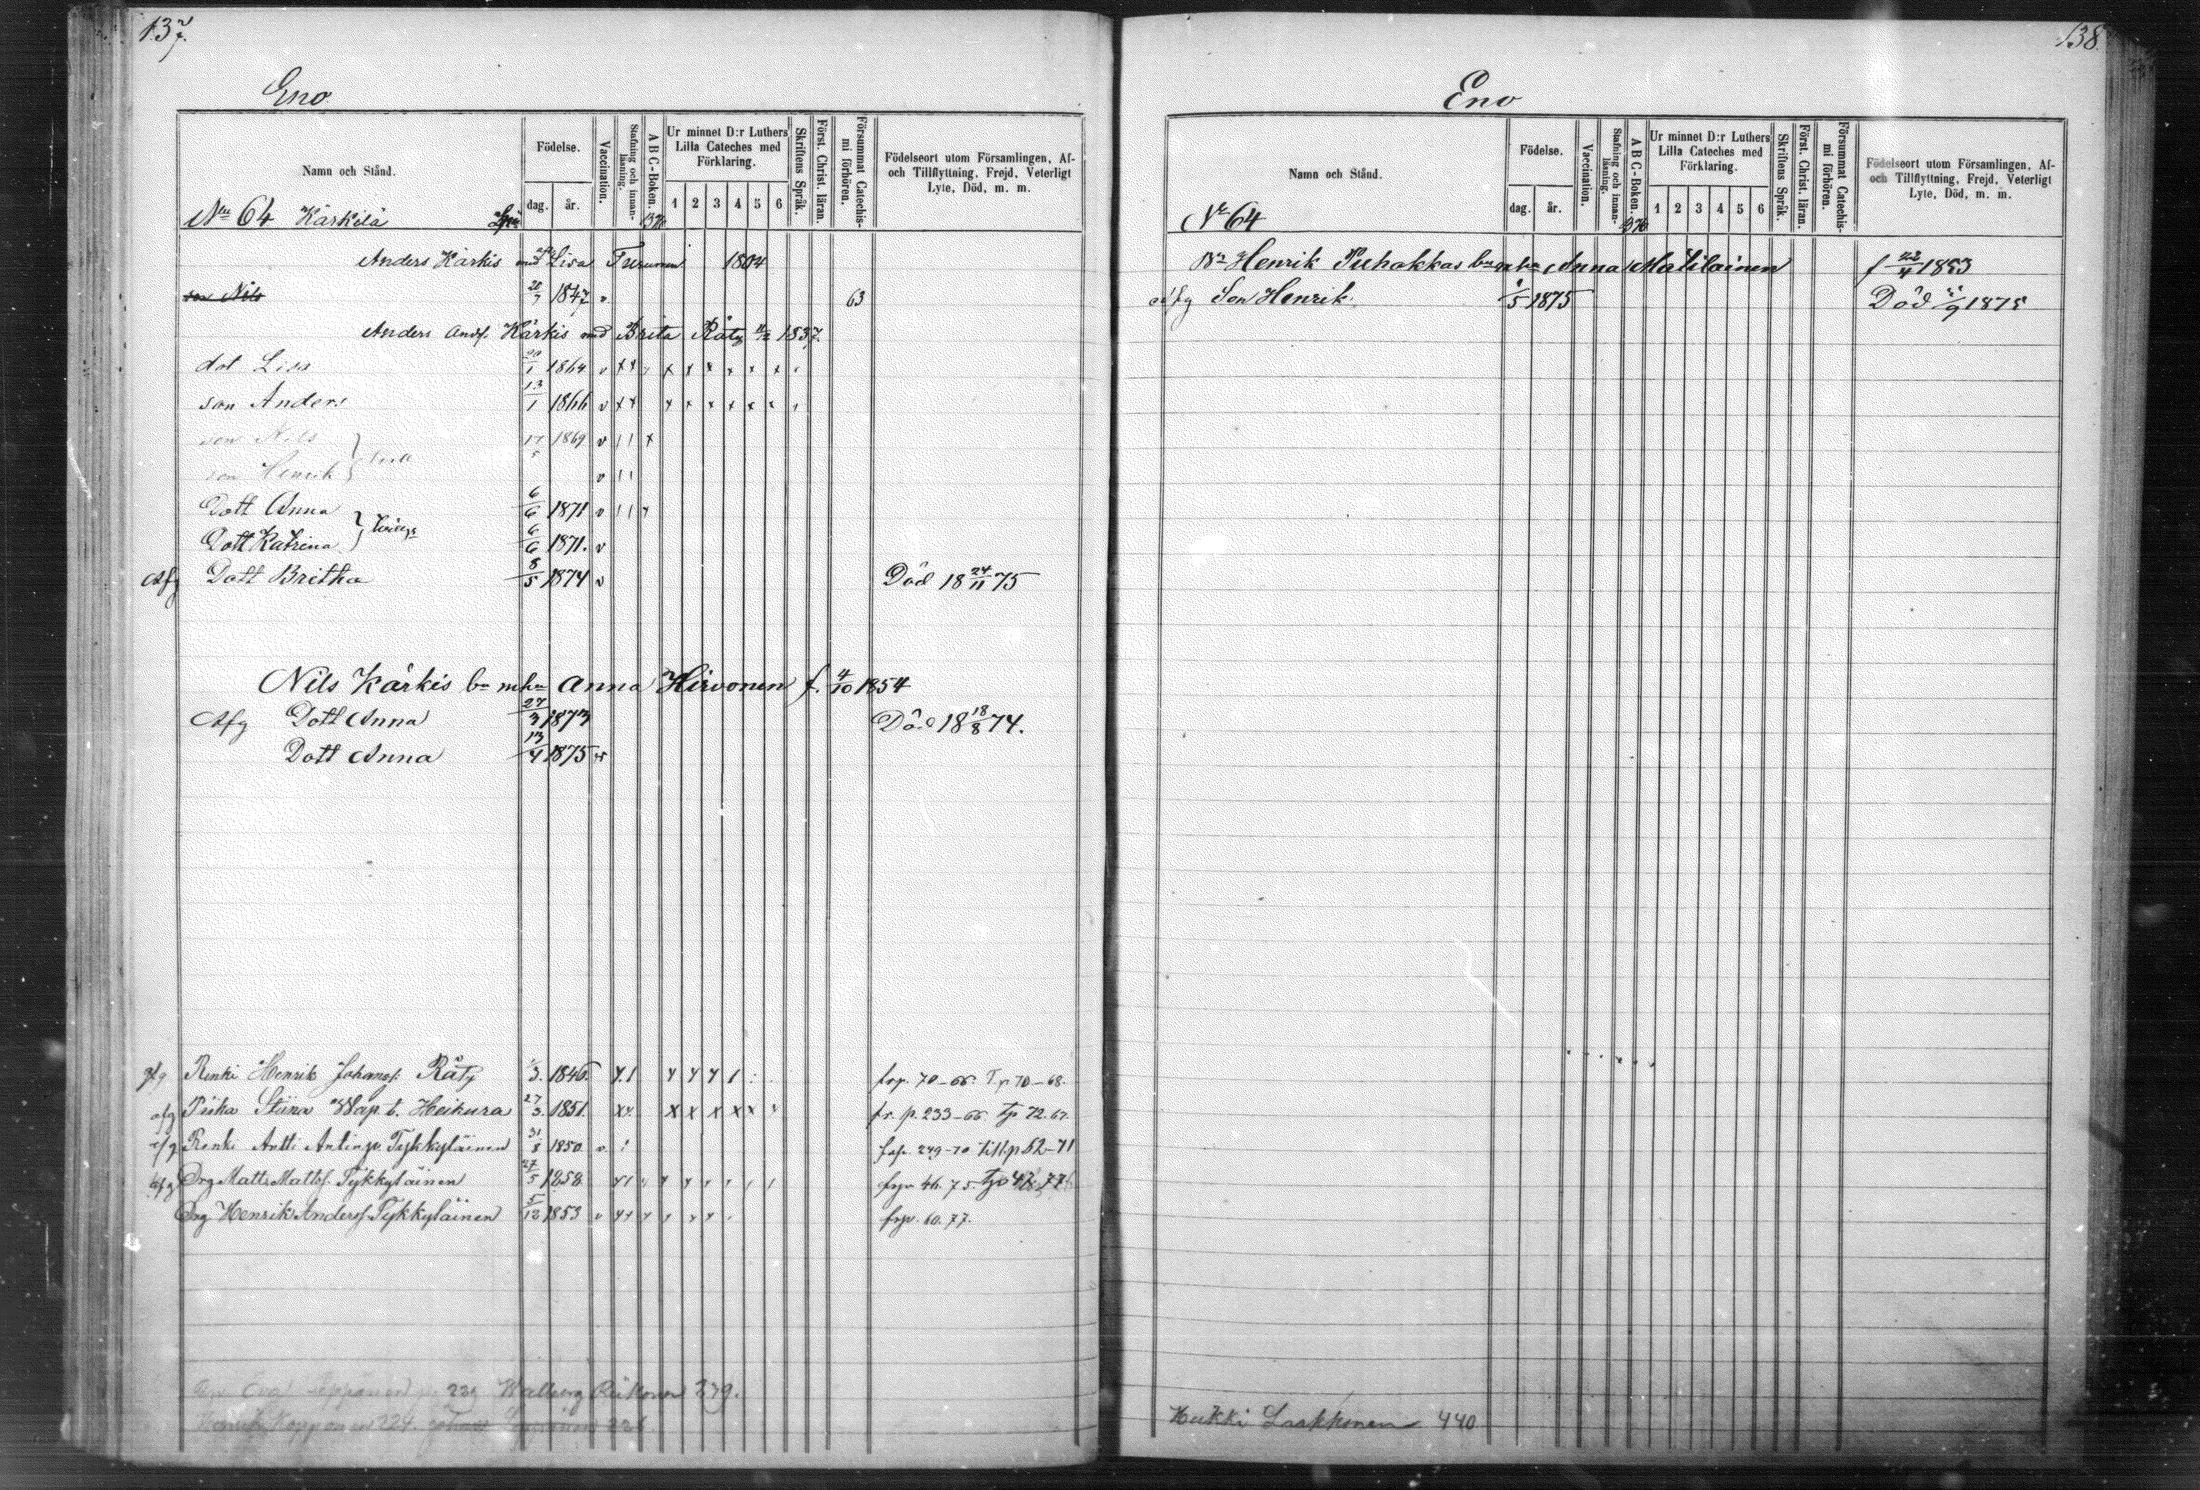 137.
Eno
Namn och Stånd.
Födelse.
dag. år.
Vaccination.
Stafning och innan-läsning.
ABC-Boken.
Ur minnet D:r Luthers Lilla Cateches med Förklaring.
1 2 3 4 5 6
Skriftens Språk.
Först. Christ. läran.
Försummat Catechis-mi förhören.
Födelseort utom Församlingen, Af- och Tillflyttning, Frejd, Veterligt Lyte, Död, m. m.
No 64 Kärkilä
Anders Kärkis Lisa Turunen 1804
son Nils 20/7 1847 v 63
Anders Andf. Kärkis md Brita Räty 1837.
dot Lisa 20/1 1864 v x x x x x x x x
son Anders 13/1 1866 v x x x x x x x x
son Nils 17/5 1869 v 11 x
son Henrik v 11
Dott Anna 6/6 1871 v 11
Dott Katrina 6/6 1871. v
Afg Dott Britha 8/5 1874 v Död 18 24/11 75
Nils Kärkis Anna Hirvonen f. 4/10 1854
Afg Dott Anna 27/3 1873 Död 18 18/8 74.
Dott Anna 13/4 1875 v
Renki Henrik Johansf. Räty 3. 1846.
afg Piika Stiina Heikura 27/3. 1851. fr. p. 233-66 tp 72.67.
afg Renki Antti Tykkyläinen 31/8 1850 v 249-70 till p 62-71
afg Drg Matts Mattsf. Tykkyläinen 27/5 1858 frp 46. 75
Drg Henrik Andersf. Tykkyläinen 5/12 1853 v frp. 60. 77.
239.
224.
138.
Eno
Namn och Stånd.
Födelse.
dag. år.
Vaccination.
Stafning och innan-läsning.
ABC-Boken.
Ur minnet D:r Luthers Lilla Cateches med Förklaring.
1 2 3 4 5 6
Skriftens Språk.
Först. Christ. läran.
Försummat Catechis-mi förhören.
Födelseort utom Församlingen, Af- och Tillflyttning, Frejd, Veterligt Lyte, Död, m. m.
No 64
Henrik Puhakkas Anna Matilainen f 22/4 1853
afg Son Henrik 1875 Död 1875
Heikki Laakkonen 440